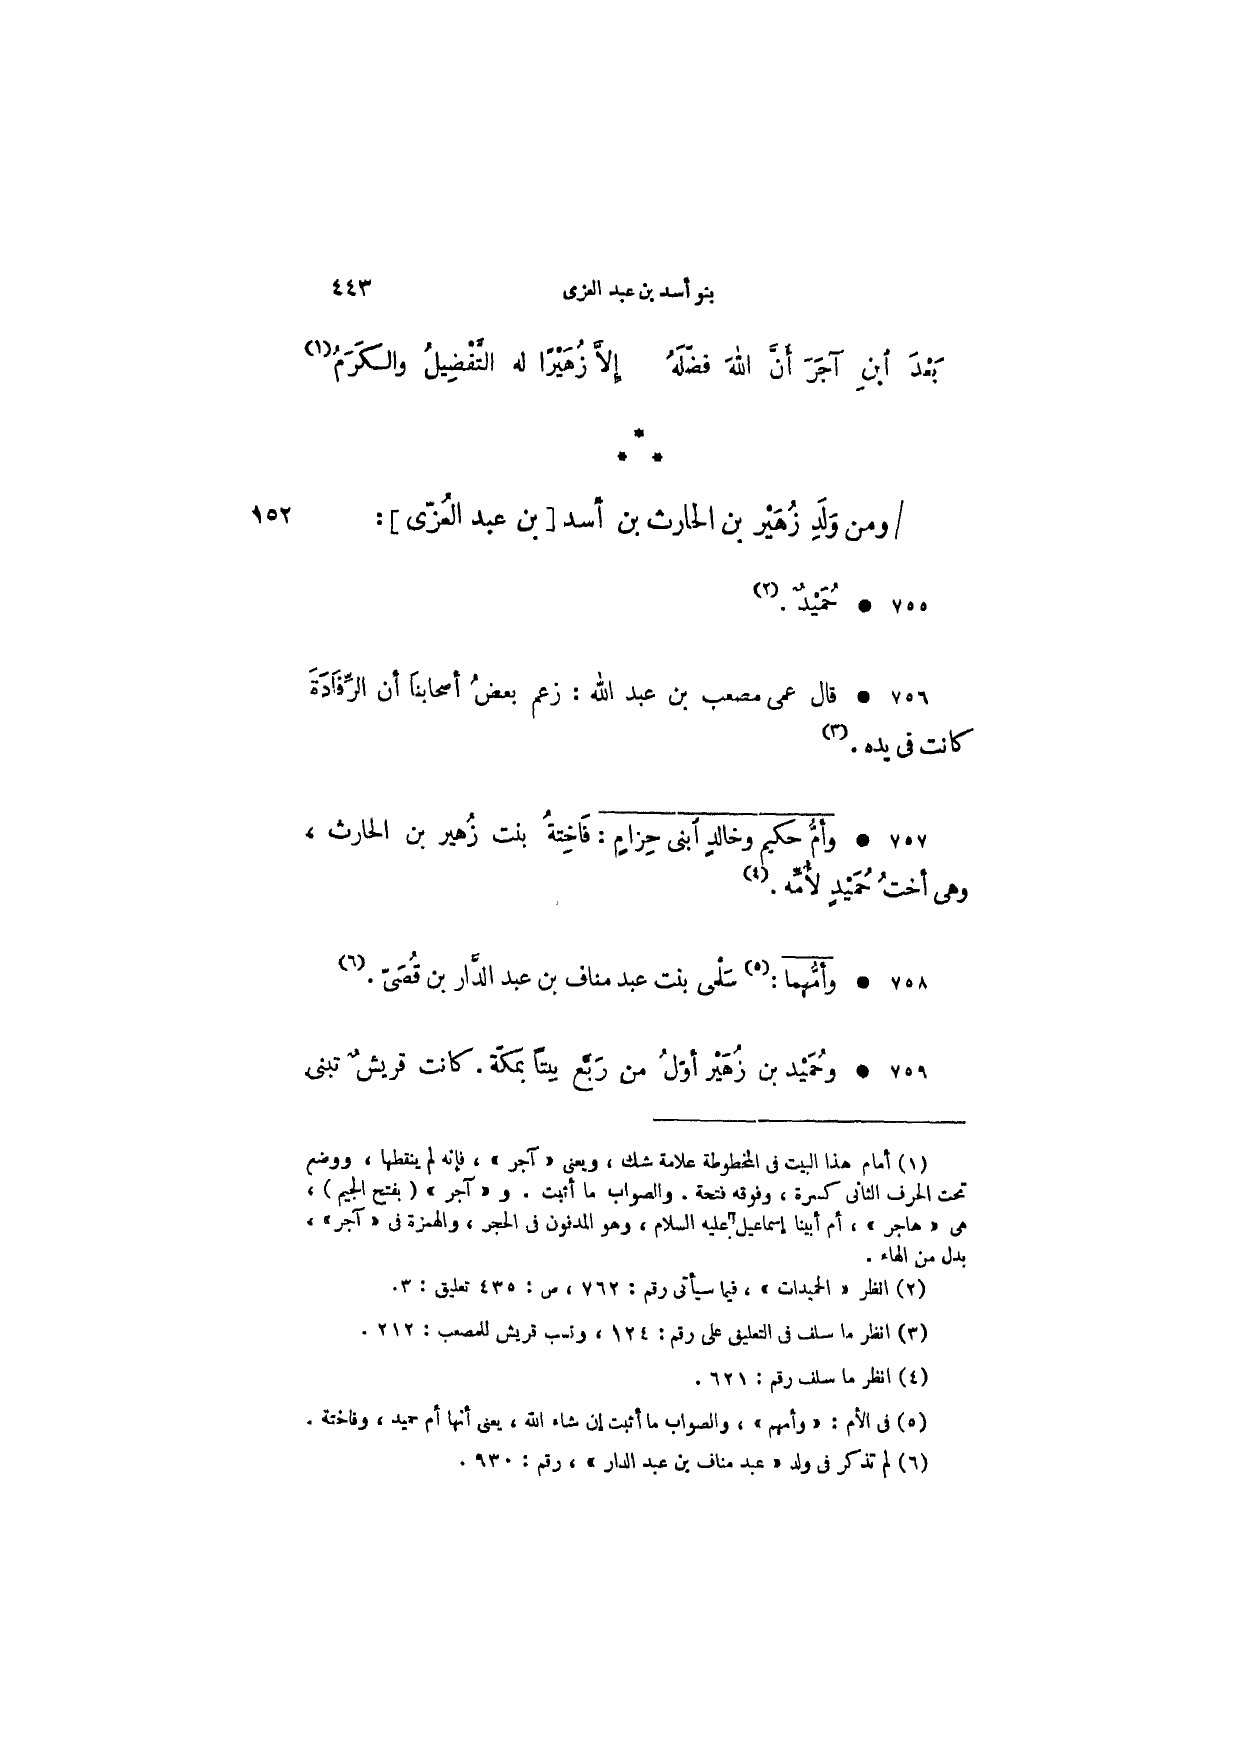 بنو أسد بن عبد العزى ٤٤٣
بَعْدَ ٱبنِ آجَرَ أَنَّ اللهَ فضّلَهُ إِلاَّ زُهَيْرًا له التَّفْضِيلُ والكَرَمُ(١)
* * *
/ ومن وَلَدِ زُهَيْر بن الحارث بن أسد [ بن عبد العُزّى ] : ١٥٢
٧٥٥ ● حُمَيْدٌ .(٢)
٧٥٦ ● قال عمى مصعب بن عبد الله : زعم بعضُ أصحابنا أن الرِّفَادَةَ
كانت فى يده .(٣)
٧٥٧ ● وأمُّ حكيمٍ وخالدٍ ٱبنى حِزامٍ : فَاخِتةُ بنت زُهير بن الحارث ،
وهى أختُ حُمَيْدٍ لأُمِّه .(٤)
٧٥٨ ● وأمُّهما :(٥) سَلْمى بنت عبد مناف بن عبد الدَّار بن قُصَىّ .(٦)
٧٥٩ ● وحُمَيْد بن زُهَيْر أوّلُ من رَبَّع بيتاً بمكّة . كانت قريشٌ تبنى
(١) أمام هذا البيت فى المخطوطة علامة شك ، ويعنى « آجر » ، فإنه لم ينقطها ، ووضع
تحت الحرف الثانى كسرة ، وفوقه فتحة . والصواب ما أثبت . و « آجر » ( بفتح الجيم ) ،
هى « هاجر » ، أم أبينا إسماعيل عليه السلام ، وهو المدفون فى الحجر ، والهمزة فى « آجر » ،
بدل من الهاء .
(٢) انظر « الحميدات » ، فيما سيأتى رقم : ٧٦٢ ، ص : ٤٣٥ تعليق : ٣.
(٣) انظر ما سلف فى التعليق على رقم : ١٢٤ ، ونسب قريش للمصعب : ٢١٢ .
(٤) انظر ما سلف رقم : ٦٢١ .
(٥) فى الأم : « وأمهم » ، والصواب ما أثبت إن شاء الله ، يعنى أنها أم حميد ، وفاختة .
(٦) لم تذكر فى ولد « عبد مناف بن عبد الدار » ، رقم : ٩٣٠ .